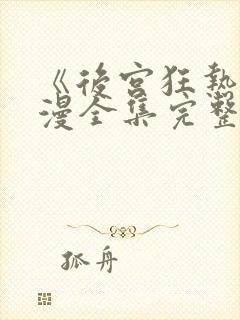 《後宮狂熱
漫全集完整
孤舟